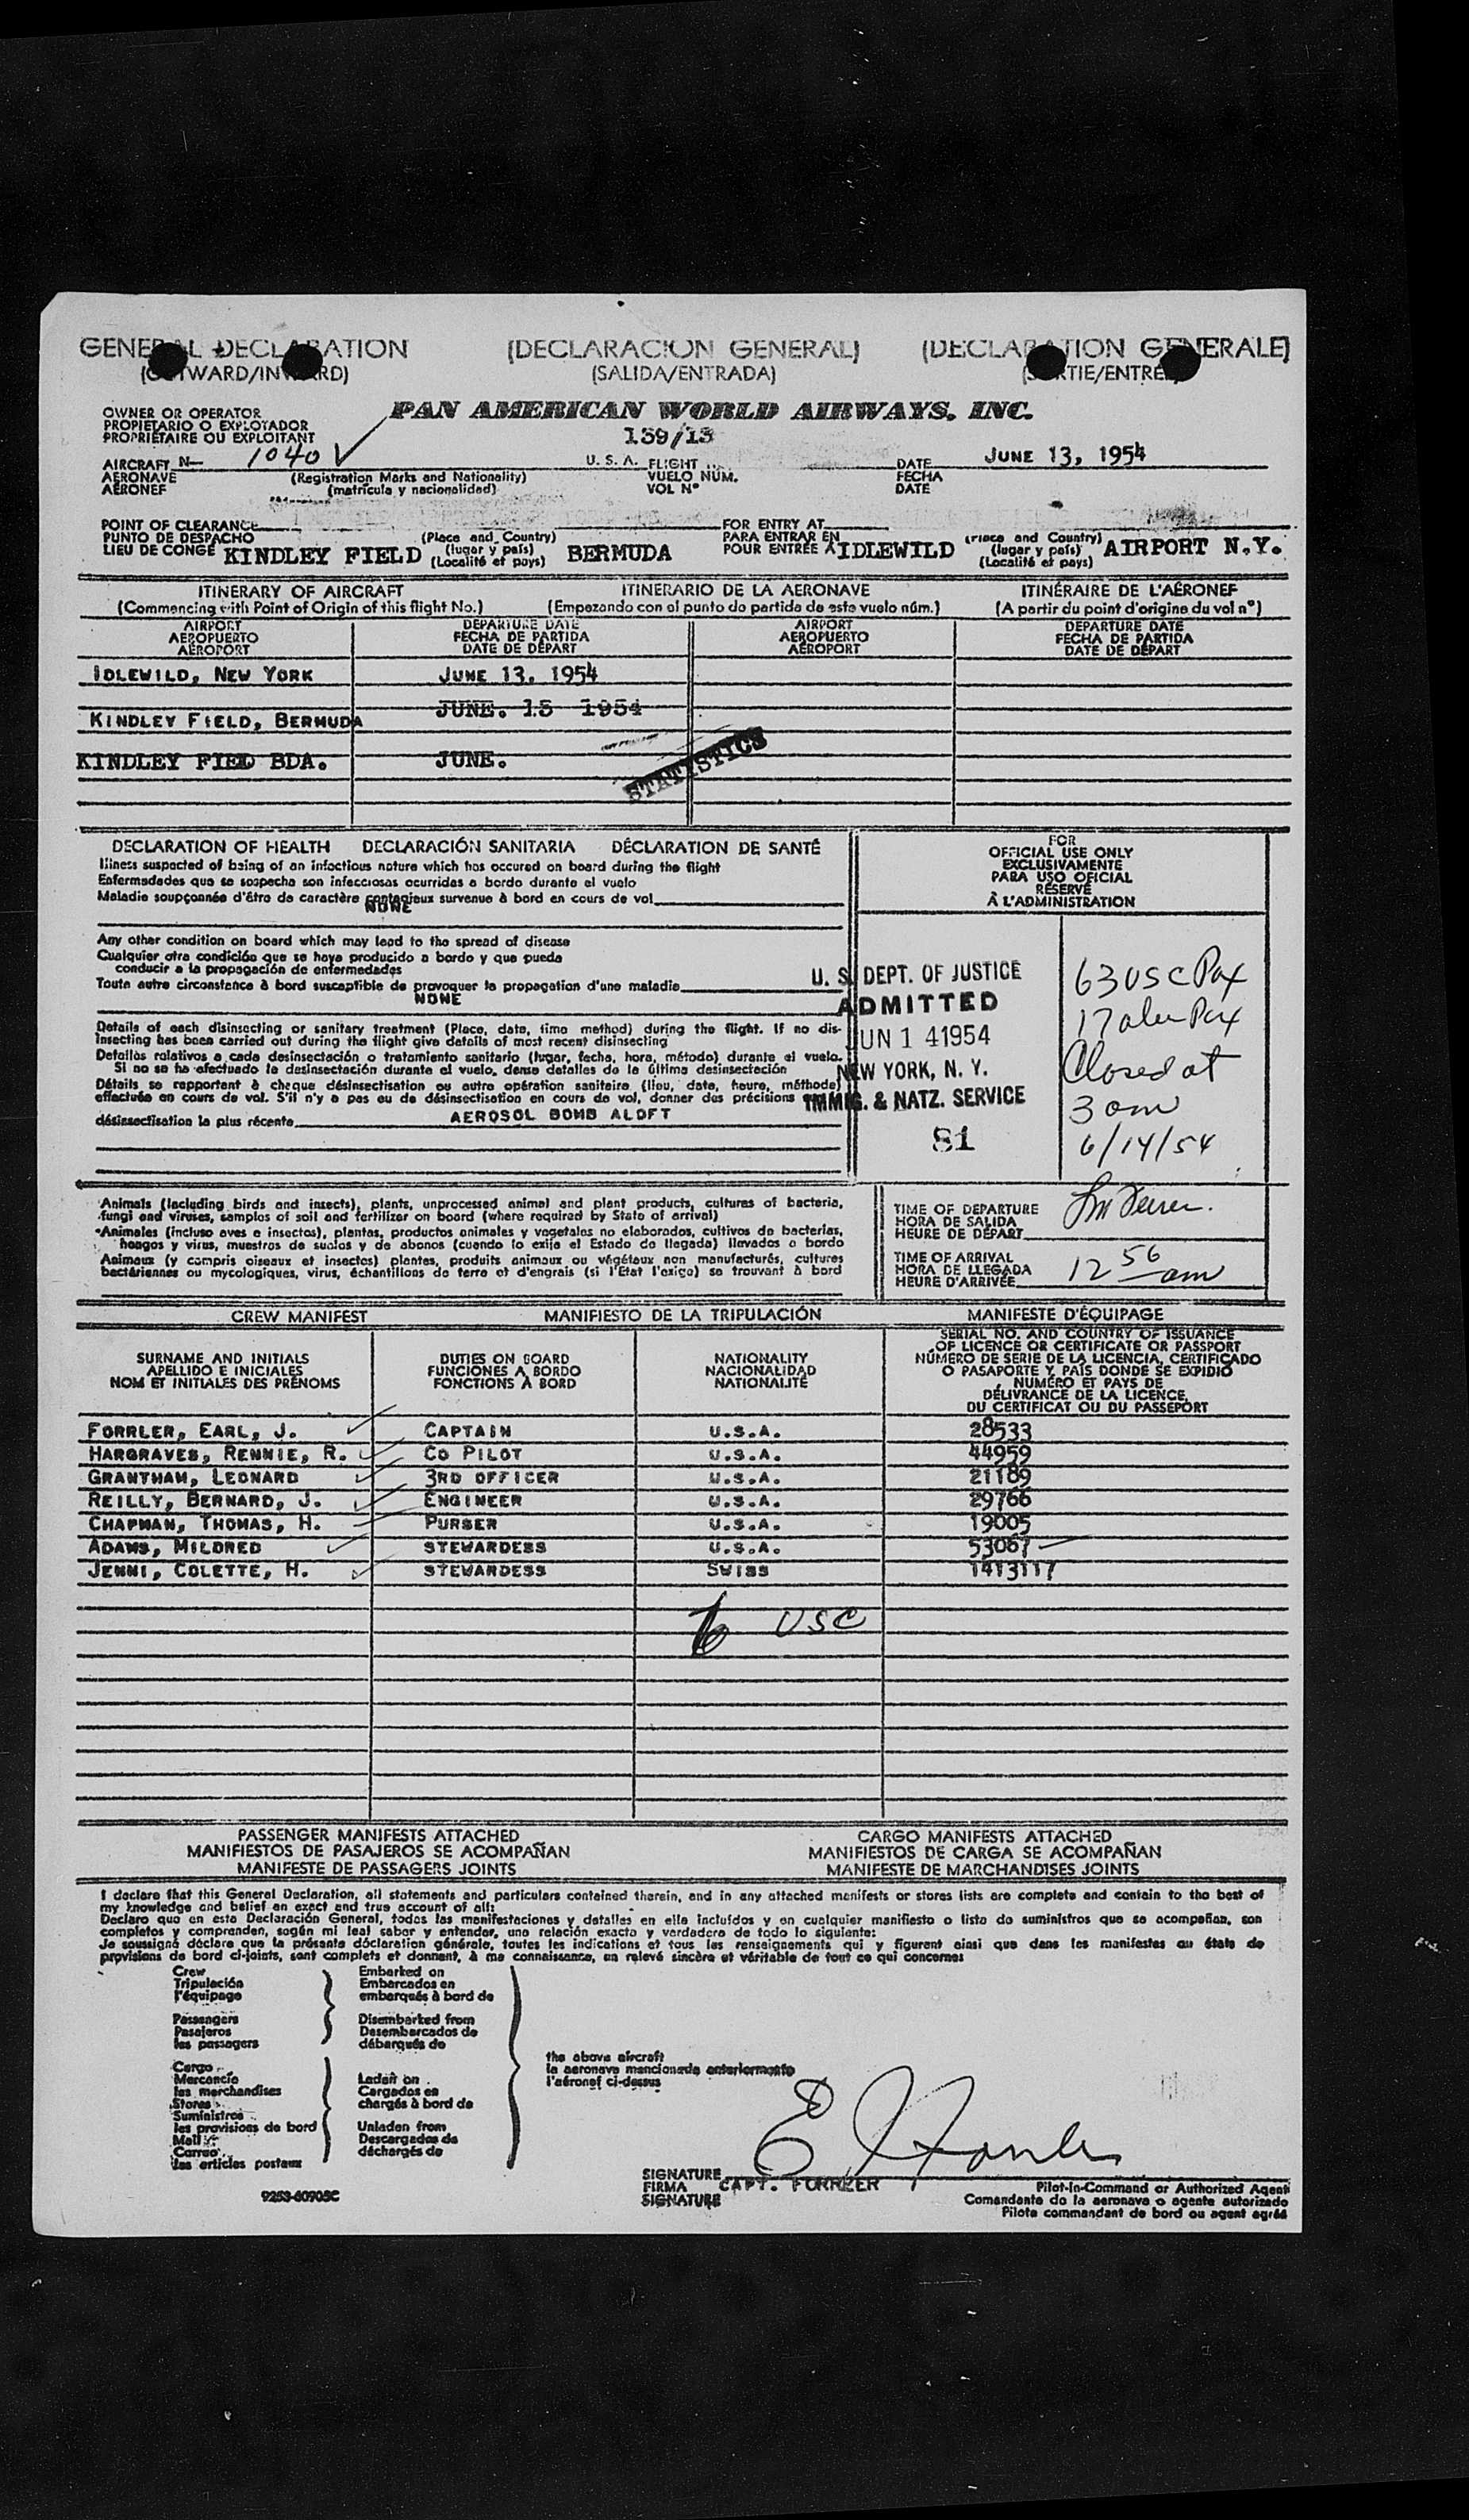 GENERAL DECLARATION (DECLARACION GENERAL) (DECLARATION GENERALE)
(OUTWARD/INWARD) (SALIDA/ENTRADA) (SORTIE/ENTRÉE)
OWNER OR OPERATOR PAN AMERICAN WORLD AIRWAYS, INC.
PROPIETARIO O EXPLOTADOR
PROPRIÉTAIRE OU EXPLOITANT 139/13
AIRCRAFT N— 1040 U. S. A. FLIGHT DATE JUNE 13, 1954
AERONAVE (Registration Marks and Nationality) VUELO NÚM. FECHA
AÉRONEF (matrícula y nacionalidad) VOL N° DATE
POINT OF CLEARANCE (Place and Country) FOR ENTRY AT (Place and Country)
PUNTO DE DESPACHO (lugar y país) PARA ENTRAR EN (lugar y país)
LIEU DE CONGÉ KINDLEY FIELD (Localité et pays) BERMUDA POUR ENTRÉE À IDLEWILD (Localité et pays) AIRPORT N.Y.
ITINERARY OF AIRCRAFT ITINERARIO DE LA AERONAVE ITINÉRAIRE DE L'AÉRONEF
(Commencing with Point of Origin of this flight No.) (Empezando con el punto de partida de este vuelo núm.) (A partir du point d'origine du vol n°)
AIRPORT DEPARTURE DATE AIRPORT DEPARTURE DATE
AEROPUERTO FECHA DE PARTIDA AEROPUERTO FECHA DE PARTIDA
AÉROPORT DATE DE DÉPART AÉROPORT DATE DE DÉPART
IDLEWILD, NEW YORK JUNE 13, 1954
KINDLEY FIELD, BERMUDA JUNE. 13 1954
KINDLEY FIED BDA. JUNE.
STATISTICS
DECLARATION OF HEALTH DECLARACIÓN SANITARIA DÉCLARATION DE SANTÉ
Illness suspected of being of an infectious nature which has occured on board during the flight
Enfermedades que se sospecha son infecciosas ocurridas a bordo durante el vuelo
Maladie soupçonnée d'être de caractère contagieux survenue à bord en cours de vol
NONE
Any other condition on board which may lead to the spread of disease
Cualquier otra condición que se haya producido a bordo y que pueda
conducir a la propagación de enfermedades
Toute autre circonstance à bord susceptible de provoquer la propagation d'une maladie
NONE
Details of each disinsecting or sanitary treatment (Place, date, time method) during the flight. If no dis-
insecting has been carried out during the flight give details of most recent disinsecting
Detalles relativos a cada desinsectación o tratamiento sanitario (lugar, fecha, hora, método) durante el vuelo.
Si no se ha efectuado la desinsectación durante el vuelo, dense detalles de la última desinsectación
Détails se rapportant à chaque désinsectisation ou autre opération sanitaire (lieu, date, heure, méthode)
effectuée en cours de vol. S'il n'y a pas eu de désinsectisation en cours de vol, donner des précisions
désinsectisation la plus récente AEROSOL BOMB ALOFT
FOR
OFFICIAL USE ONLY
EXCLUSIVAMENTE
PARA USO OFICIAL
RÉSERVÉ
À L'ADMINISTRATION
U. S. DEPT. OF JUSTICE
ADMITTED
JUN 1 41954
NEW YORK, N. Y.
IMMIG. & NATZ. SERVICE
81
63 USC Pax
17 alien Pax
Closed at
3 am
6/14/54
Animals (including birds and insects), plants, unprocessed animal and plant products, cultures of bacteria,
fungi and viruses, samples of soil and fertilizer on board (where required by State of arrival)
Animales (incluso aves e insectos), plantas, productos animales y vegetales no elaborados, cultivos de bacterias,
hongos y virus, muestras de suelos y de abonos (cuando lo exija el Estado de llegada) llevados a bordo
Animaux (y compris oiseaux et insectes) plantes, produits animaux ou végétaux non manufacturés, cultures
bactériennes ou mycologiques, virus, échantillons de terre et d'engrais (si l'État l'exige) se trouvant à bord
TIME OF DEPARTURE
HORA DE SALIDA
HEURE DE DÉPART
TIME OF ARRIVAL
HORA DE LLEGADA
HEURE D'ARRIVÉE 12 56 am
CREW MANIFEST MANIFIESTO DE LA TRIPULACIÓN MANIFESTE D'ÉQUIPAGE
SURNAME AND INITIALS DUTIES ON BOARD NATIONALITY
APELLIDO E INICIALES FUNCIONES A BORDO NACIONALIDAD
NOM ET INITIALES DES PRÉNOMS FONCTIONS À BORD NATIONALITÉ
SERIAL NO. AND COUNTRY OF ISSUANCE
OF LICENCE OR CERTIFICATE OR PASSPORT
NÚMERO DE SERIE DE LA LICENCIA, CERTIFICADO
O PASAPORTE Y PAÍS DONDE SE EXPIDIÓ
NUMÉRO ET PAYS DE
DÉLIVRANCE DE LA LICENCE,
DU CERTIFICAT OU DU PASSEPORT
FORRLER, EARL, J. CAPTAIN U.S.A. 28533
HARGRAVES, RENNIE, R. CO PILOT U.S.A. 44959
GRANTHAM, LEONARD 3RD OFFICER U.S.A. 21189
REILLY, BERNARD, J. ENGINEER U.S.A. 29766
CHAPMAN, THOMAS, H. PURSER U.S.A. 19005
ADAMS, MILDRED STEWARDESS U.S.A. 53067
JENNI, COLETTE, H. STEWARDESS SWISS 1413117
6 USC
PASSENGER MANIFESTS ATTACHED CARGO MANIFESTS ATTACHED
MANIFIESTOS DE PASAJEROS SE ACOMPAÑAN MANIFIESTOS DE CARGA SE ACOMPAÑAN
MANIFESTE DE PASSAGERS JOINTS MANIFESTE DE MARCHANDISES JOINTS
I declare that this General Declaration, all statements and particulars contained therein, and in any attached manifests or stores lists are complete and contain to the best of
my knowledge and belief an exact and true account of all:
Declaro que en esta Declaración General, todas las manifestaciones y detalles en ella incluídos y en cualquier manifiesto o lista de suministros que se acompañan, son
completos y comprenden, según mi leal saber y entender, una relación exacta y verdadera de todo lo siguiente:
Je soussigné déclare que la présente déclaration générale, toutes les indications et tous les renseignements qui y figurent ainsi que dans les manifestes ou états de
provisions de bord ci-joints, sont complets et donnent, à ma connaissance, un relevé sincère et véritable de tout ce qui concerne:
Crew Embarked on
Tripulación Embarcados en
l'équipage embarqués à bord de
Passengers Disembarked from
Pasajeros Desembarcados de
les passagers débarqués de
the above aircraft
la aeronave mencionada anteriormente
l'aéronef ci-dessus
Cargo Laden on
Mercancía Cargados en
les merchandises chargés à bord de
Stores
Suministros
les provisions de bord Unladen from
Mail Descargados de
Correo déchargés de
les articles postaux
9253-60905C
SIGNATURE
FIRMA CAPT. FORRLER
SIGNATURE
Pilot-in-Command or Authorized Agent
Comandante de la aeronave o agente autorizado
Pilote commandant de bord ou agent agréé